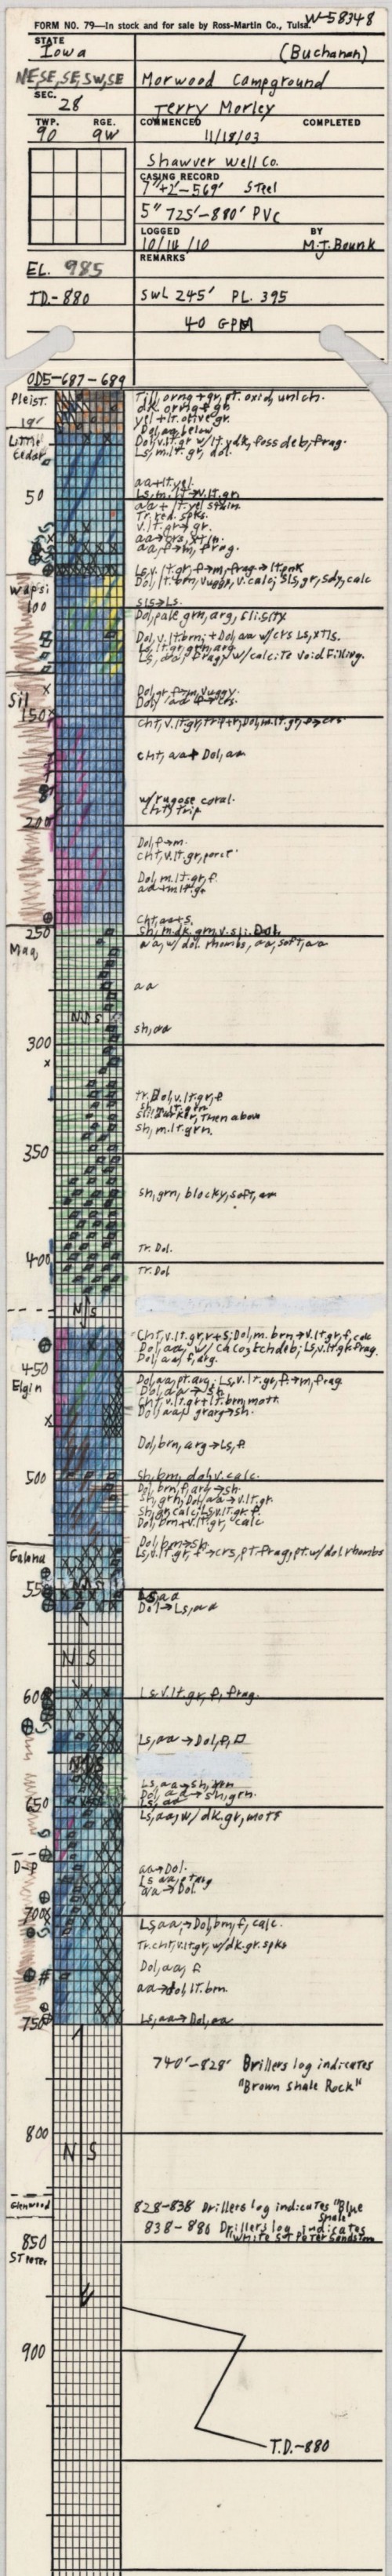 W-58348
FORM NO. 79—In stock and for sale by Ross-Martin Co., Tulsa.
STATE
Iowa (Buchanan)
NE,SE,SE,SW,SE Morwood Campground
SEC.
28 Terry Morley
TWP. RGE. COMMENCED COMPLETED
90 9W 11/18/03
Shawver Well Co.
CASING RECORD
7"+2'-569' Steel
5" 725'-880' PVC
LOGGED BY
10/14/10 M.J. Bounk
REMARKS
EL. 985
TD.-880 SWL 245' PL. 395
40 GPM
ODS-687-689
Pleist. Till, orng+gr, pt. oxid, unlch.
dk orng+gr
yel+lt. olive gr.
19' Dol, aa, below
Little Dol, v.lt.gr w/lt.ydk, foss deb, frag.
Cedar Ls, m.lt.gr, dol.
aa+lt.yel.
50 Ls, m.lt→v.lt.gr.
aa+lt.yel stain
Tr. red. spks.
v.lt.gr→gr.
aa→crs, xtln.
aa, f→m, frag.
Ls, v.lt.gr, f→m, frag→lt.pnk
Wapsi Dol, lt.brn, vuggy, v.calc; Sls, gr, sdy, calc
100 Sls→Ls.
Dol, pale grn, arg, sli.slty
Dol, v.lt.brn; +Dol, aa w/crs Ls, xtls.
Ls, lt.gr, grn, arg
Ls, aa, frag, w/calcite void filling.
Sil Dol, gr, f→m, vuggy.
Dol, aa f→crs.
150 Cht, v.lt.gr, trip+r, Dol, m.lt.gr, →crs
Cht, aa+Dol, aa
w/rugose coral.
200 Cht, trip
Dol, f→m.
Cht, v.lt.gr, porct.
Dol, m.lt.gr, f.
aa+m.lt.gr
Cht, aa+s.
250 Sh, m.dk.grn, v.sli.Dol.
Maq aa, w/dol. rhombs, aa, soft, aa
aa
N S
Sh, aa
300
Tr. Dol, v.lt.gr, f
Sh, m.lt.grn
Sli. darker, then above
Sh, m.lt.grn.
350
Sh, grn, blocky, soft, aa
Tr. Dol.
400 Tr. Dol
N S
Cht, v.lt.gr, r+s; Dol, m.brn→v.lt.gr, f, calc
Dol, aa, w/chcoz Ech deb; Ls, v.lt.gr frag.
Dol, aa, f, arg.
450 Dol, aa, pt.arg; Ls, v.lt.gr, f→m, frag
Elgin Dol, aa→sh.
Cht, v.lt.gr+lt.brn, mott.
Dol, aa, gr arg→sh.
Dol, brn, arg→Ls, f.
500 Sh, brn, dol, v.calc.
Dol, brn, f, arg→sh.
Sh, grn, Dol, aa→v.lt.gr.
Sh, gr, calc; Ls, v.lt.gr.f.
Dol, brn+v.lt.gr, calc
Dol, brn→sh.
Galena Ls, v.lt.gr, f→crs, pt.frag, pt.w/dol rhombs
550 N S Ls, aa
Dol→Ls, aa
N S
600 Ls, v.lt.gr, f, frag.
Ls, aa→Dol, f, □
NS
Ls, aa→sh, grn
Dol, aa→sh, grn.
Ls, aa
650 Ls, aa, w/dk.gr, mott
D-P aa→Dol.
Ls aa, pt arg
aa→Dol
700 Ls, aa,→Dol, brn, f, calc.
Tr. cht, v.lt.gr, w/dk.gr.spks
Dol, aa, f
aa→dol, lt.brn.
750 Ls, aa→Dol, aa
740'-828' Drillers log indicates
"Brown Shale Rock"
800
N S
Glenwood 828-838 Drillers log indicates "Blue
Shale"
838-880 Drillers log indicates
850 "White St Peter Sandston
ST Peter
900
T.D.-880